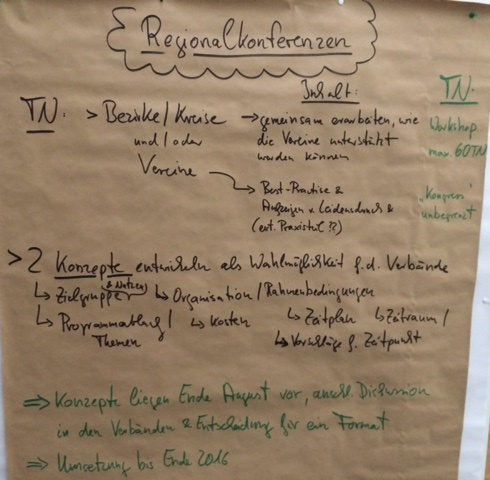 Regionalkonferenzen
TN. > Bezirke/Kreise
und/oder
Vereine
Inhalt:
→ gemeinsam erarbeiten, wie
die Vereine unterstützt
werden können
→ Best-Practise &
Aufzeigen v. Leidensdruck &
(evt. Praxisteil ??)
TN.
Workshop
max. 60 TN
"Kongress"
unbegrenzt
> 2 Konzepte entwickeln als Wahlmöglichkeit f. d. Verbände
↳ Zielgruppe (& Nutzen) ↳ Organisation/Rahmenbedingungen
↳ Programmablauf/ ↳ Kosten ↳ Zeitplan ↳ Zeitraum/
Themen ↳ Vorschläge f. Zeitpunkt
⇒ Konzepte liegen Ende August vor, anschl. Diskussion
in den Verbänden & Entscheidung für ein Format
⇒ Umsetzung bis Ende 2016